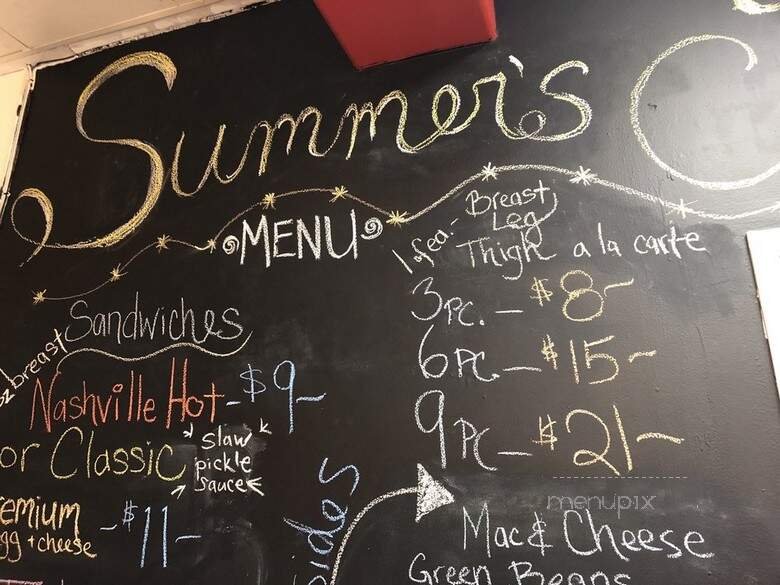 Summer's C
MENU
Sandwiches
oz breast
Nashville Hot - $9-
or Classic
slaw
pickle
sauce
remium - $11-
gg + cheese
1 of ea. - Breast
Leg
Thigh a la carte
3 Pc. - $8-
6 PC - $15-
9 PC - $21-
ides
Mac & Cheese
Green Beans
menupix